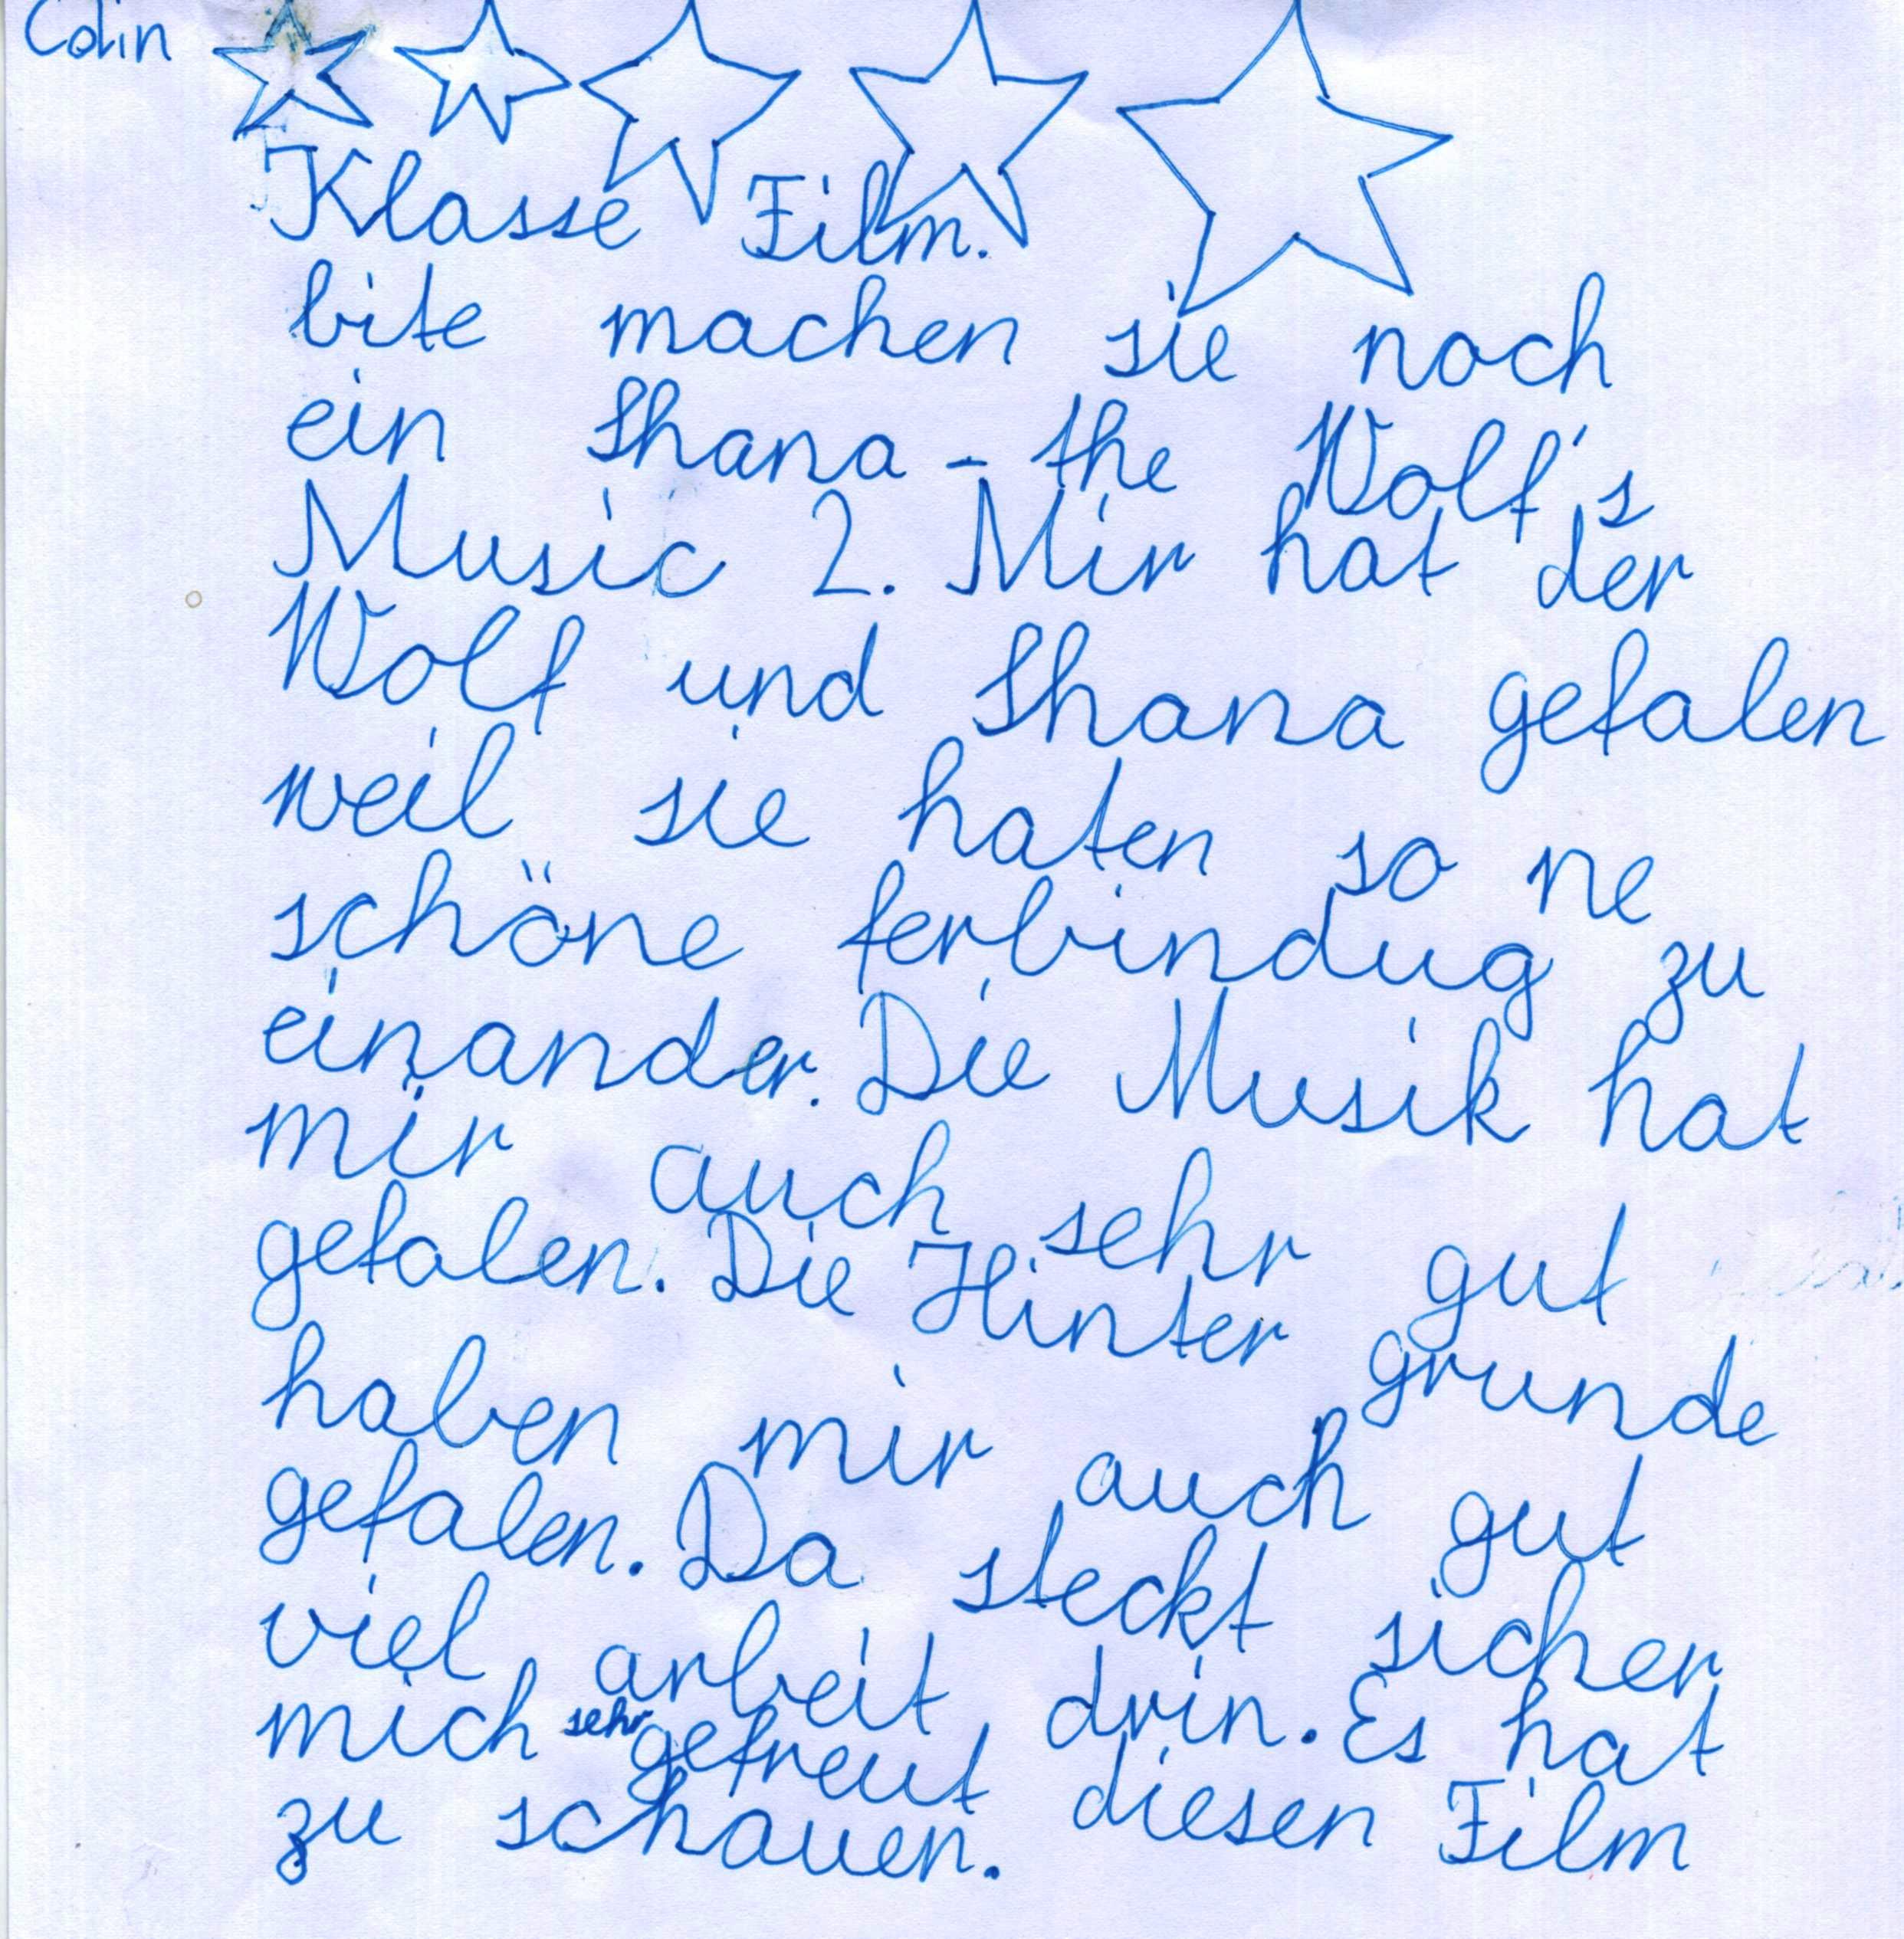 Colin
Klasse Film.
bite machen sie noch
ein Shana - the Wolf's
Music 2. Mir hat der
Wolf und Shana gefalen
weil sie haten so ne
schöne ferbindug zu
einander. Die Musik hat
mir auch sehr gut
gefalen. Die Hinter grunde
haben mir auch gut
gefalen. Da steckt sicher
viel arbeit drin. Es hat
mich sehr gefreut diesen Film
zu schauen.